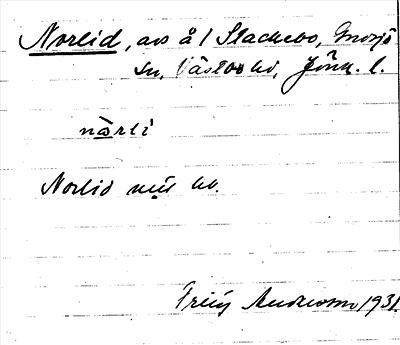 Norlid, avs å 1 Stackebo, Gnosjö
sn, Västbo hd, Jönk. l.
nòrlí
Norlid
Andersson 1931.